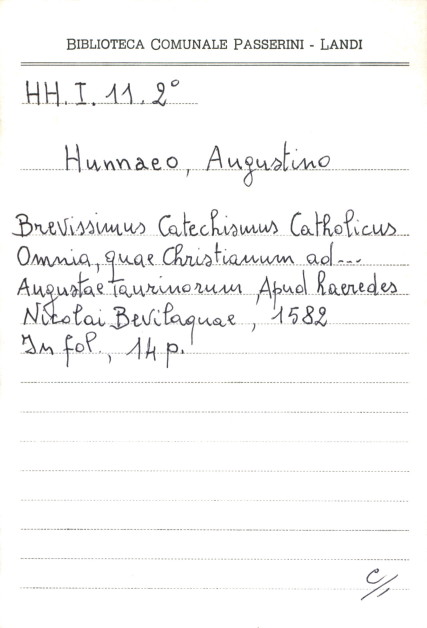 BIBLIOTECA COMUNALE PASSERINI - LANDI
HH. I. 11. 2°
Hunnaeo, Augustino
Brevissimus Catechismus Catholicus
Omnia, quae Christianum ad...
Augustae Taurinorum, Apud haeredes
Nicolai Bevilaquae, 1582
In fol., 14 p.